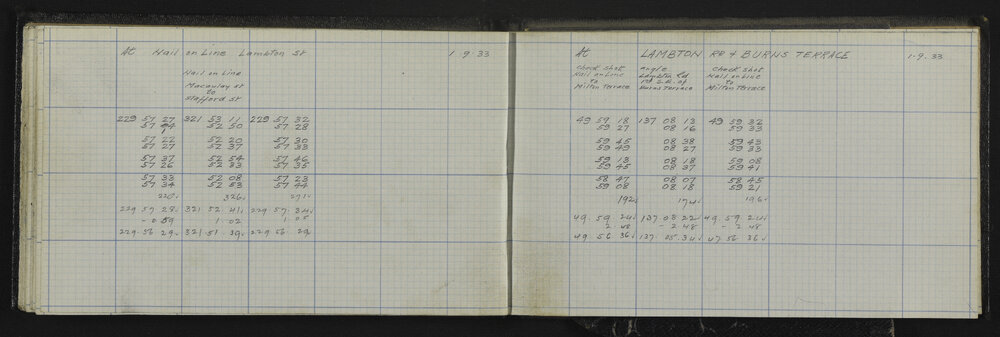 At Nail on Line Lambton St 1 · 9 · 33
Nail on Line
Macaulay st
to
Stafford st
229 57 27 321 53 11 229 57 32
57 52 50 57 28
57 22 52 20 57 30
57 27 52 37 57 33
57 37 52 54 57 46
57 26 52 33 57 35
57 33 52 08 57 23
57 34 52 53 57 44
220 326 271
229 57 28 321 52 41 229 57 34
- 0 59 1 02 1 05
229 56 29 321 51 39 229 56 29
At LAMBTON RD + BURNS TERRACE 1 · 9 · 33
Check Shot Angle Check Shot
Nail on Line Lambton Rd Nail on Line
to of to
Milton Terrace Burns Terrace Milton Terrace
49 59 18 137 08 13 49 59 32
59 27 08 16 59 33
59 45 08 38 59 43
59 49 08 27 59 33
59 13 08 18 59 08
59 45 08 37 59 41
58 47 08 07 58 45
59 08 08 18 59 21
192 174 196
49 59 24 137 08 22 49 59 24
2 48 - 2 48 - 2 48
49 56 36 137 05 34 47 56 36